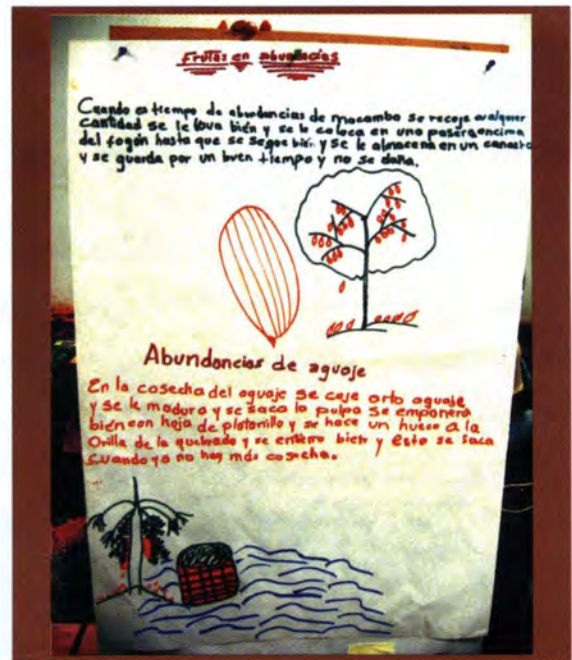 Frutas en abundacias
Cuando es tiempo de abundancias de macambo se recoje cualquier
cantidad se le lava bién y se le coloca en una pasera encima
del fogón hasta que se seque bién y se le almacena en un canasto
y se guarda por un buen tiempo y no se daña.
Abundancias de aguaje
En la cosecha del aguaje se coje arto aguaje
y se le madura y se saca la pulpa se empanera
bién con hoja de platanillo y se hace un hueco a la
Orilla de la quebrada y se entierra bien y esto se saca
cuando ya no hay más cosecha.